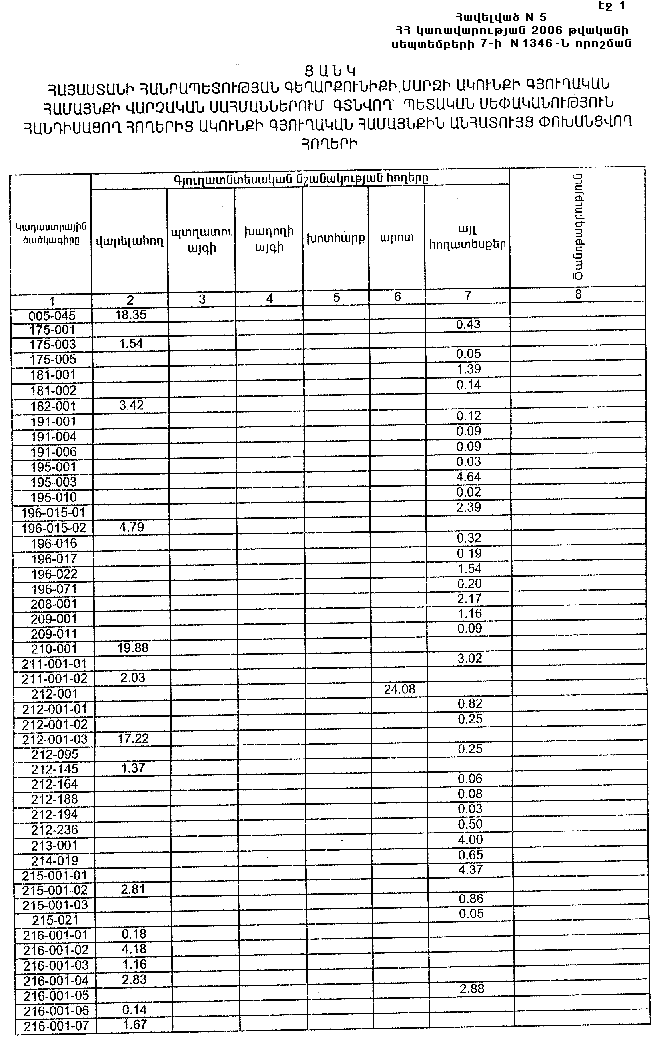 Էջ 1
Հավելված N 5
ՀՀ կառավարության 2006 թվականի
սեպտեմբերի 7-ի N 1346-Ն որոշման
Ց Ա Ն Կ
ՀԱՅԱՍՏԱՆԻ ՀԱՆՐԱՊԵՏՈՒԹՅԱՆ ԳԵՂԱՐՔՈՒՆԻՔԻ ՄԱՐԶԻ ԱԿՈՒՆՔԻ ԳՅՈՒՂԱԿԱՆ
ՀԱՄԱՅՆՔԻ ՎԱՐՉԱԿԱՆ ՍԱՀՄԱՆՆԵՐՈՒՄ ԳՏՆՎՈՂ ՊԵՏԱԿԱՆ ՍԵՓԱԿԱՆՈՒԹՅՈՒՆ
ՀԱՆԴԻՍԱՑՈՂ ՀՈՂԵՐԻՑ ԱԿՈՒՆՔԻ ԳՅՈՒՂԱԿԱՆ ՀԱՄԱՅՆՔԻՆ ԱՆՀԱՏՈՒՅՑ ՓՈԽԱՆՑՎՈՂ
ՀՈՂԵՐԻ
Գյուղատնտեսական նշանակության հողերը
Կադաստրային ծածկագիրը վարելահող պտղատու այգի խաղողի այգի խոտհարք արոտ այլ հողատեսքեր Ծանոթագրություն
1 2 3 4 5 6 7 8
005-045 18.35
175-001 0.43
175-003 1.54
175-005 0.05
181-001 1.39
181-002 0.14
182-001 3.42
191-001 0.12
191-004 0.09
191-006 0.09
195-001 0.03
195-003 4.64
195-010 0.02
196-015-01 2.39
196-015-02 4.79
196-016 0.32
196-017 0.19
196-022 1.54
196-071 0.20
208-001 2.17
209-001 1.16
209-011 0.09
210-001 19.88
211-001-01 3.02
211-001-02 2.03
212-001 24.08
212-001-01 0.82
212-001-02 0.25
212-001-03 17.22
212-095 0.25
212-145 1.37
212-164 0.06
212-188 0.08
212-194 0.03
212-236 0.50
213-001 4.00
214-019 0.65
215-001-01 4.37
215-001-02 2.81
215-001-03 0.86
215-021 0.05
216-001-01 0.18
216-001-02 4.18
216-001-03 1.16
216-001-04 2.83
216-001-05 2.88
216-001-06 0.14
216-001-07 1.67